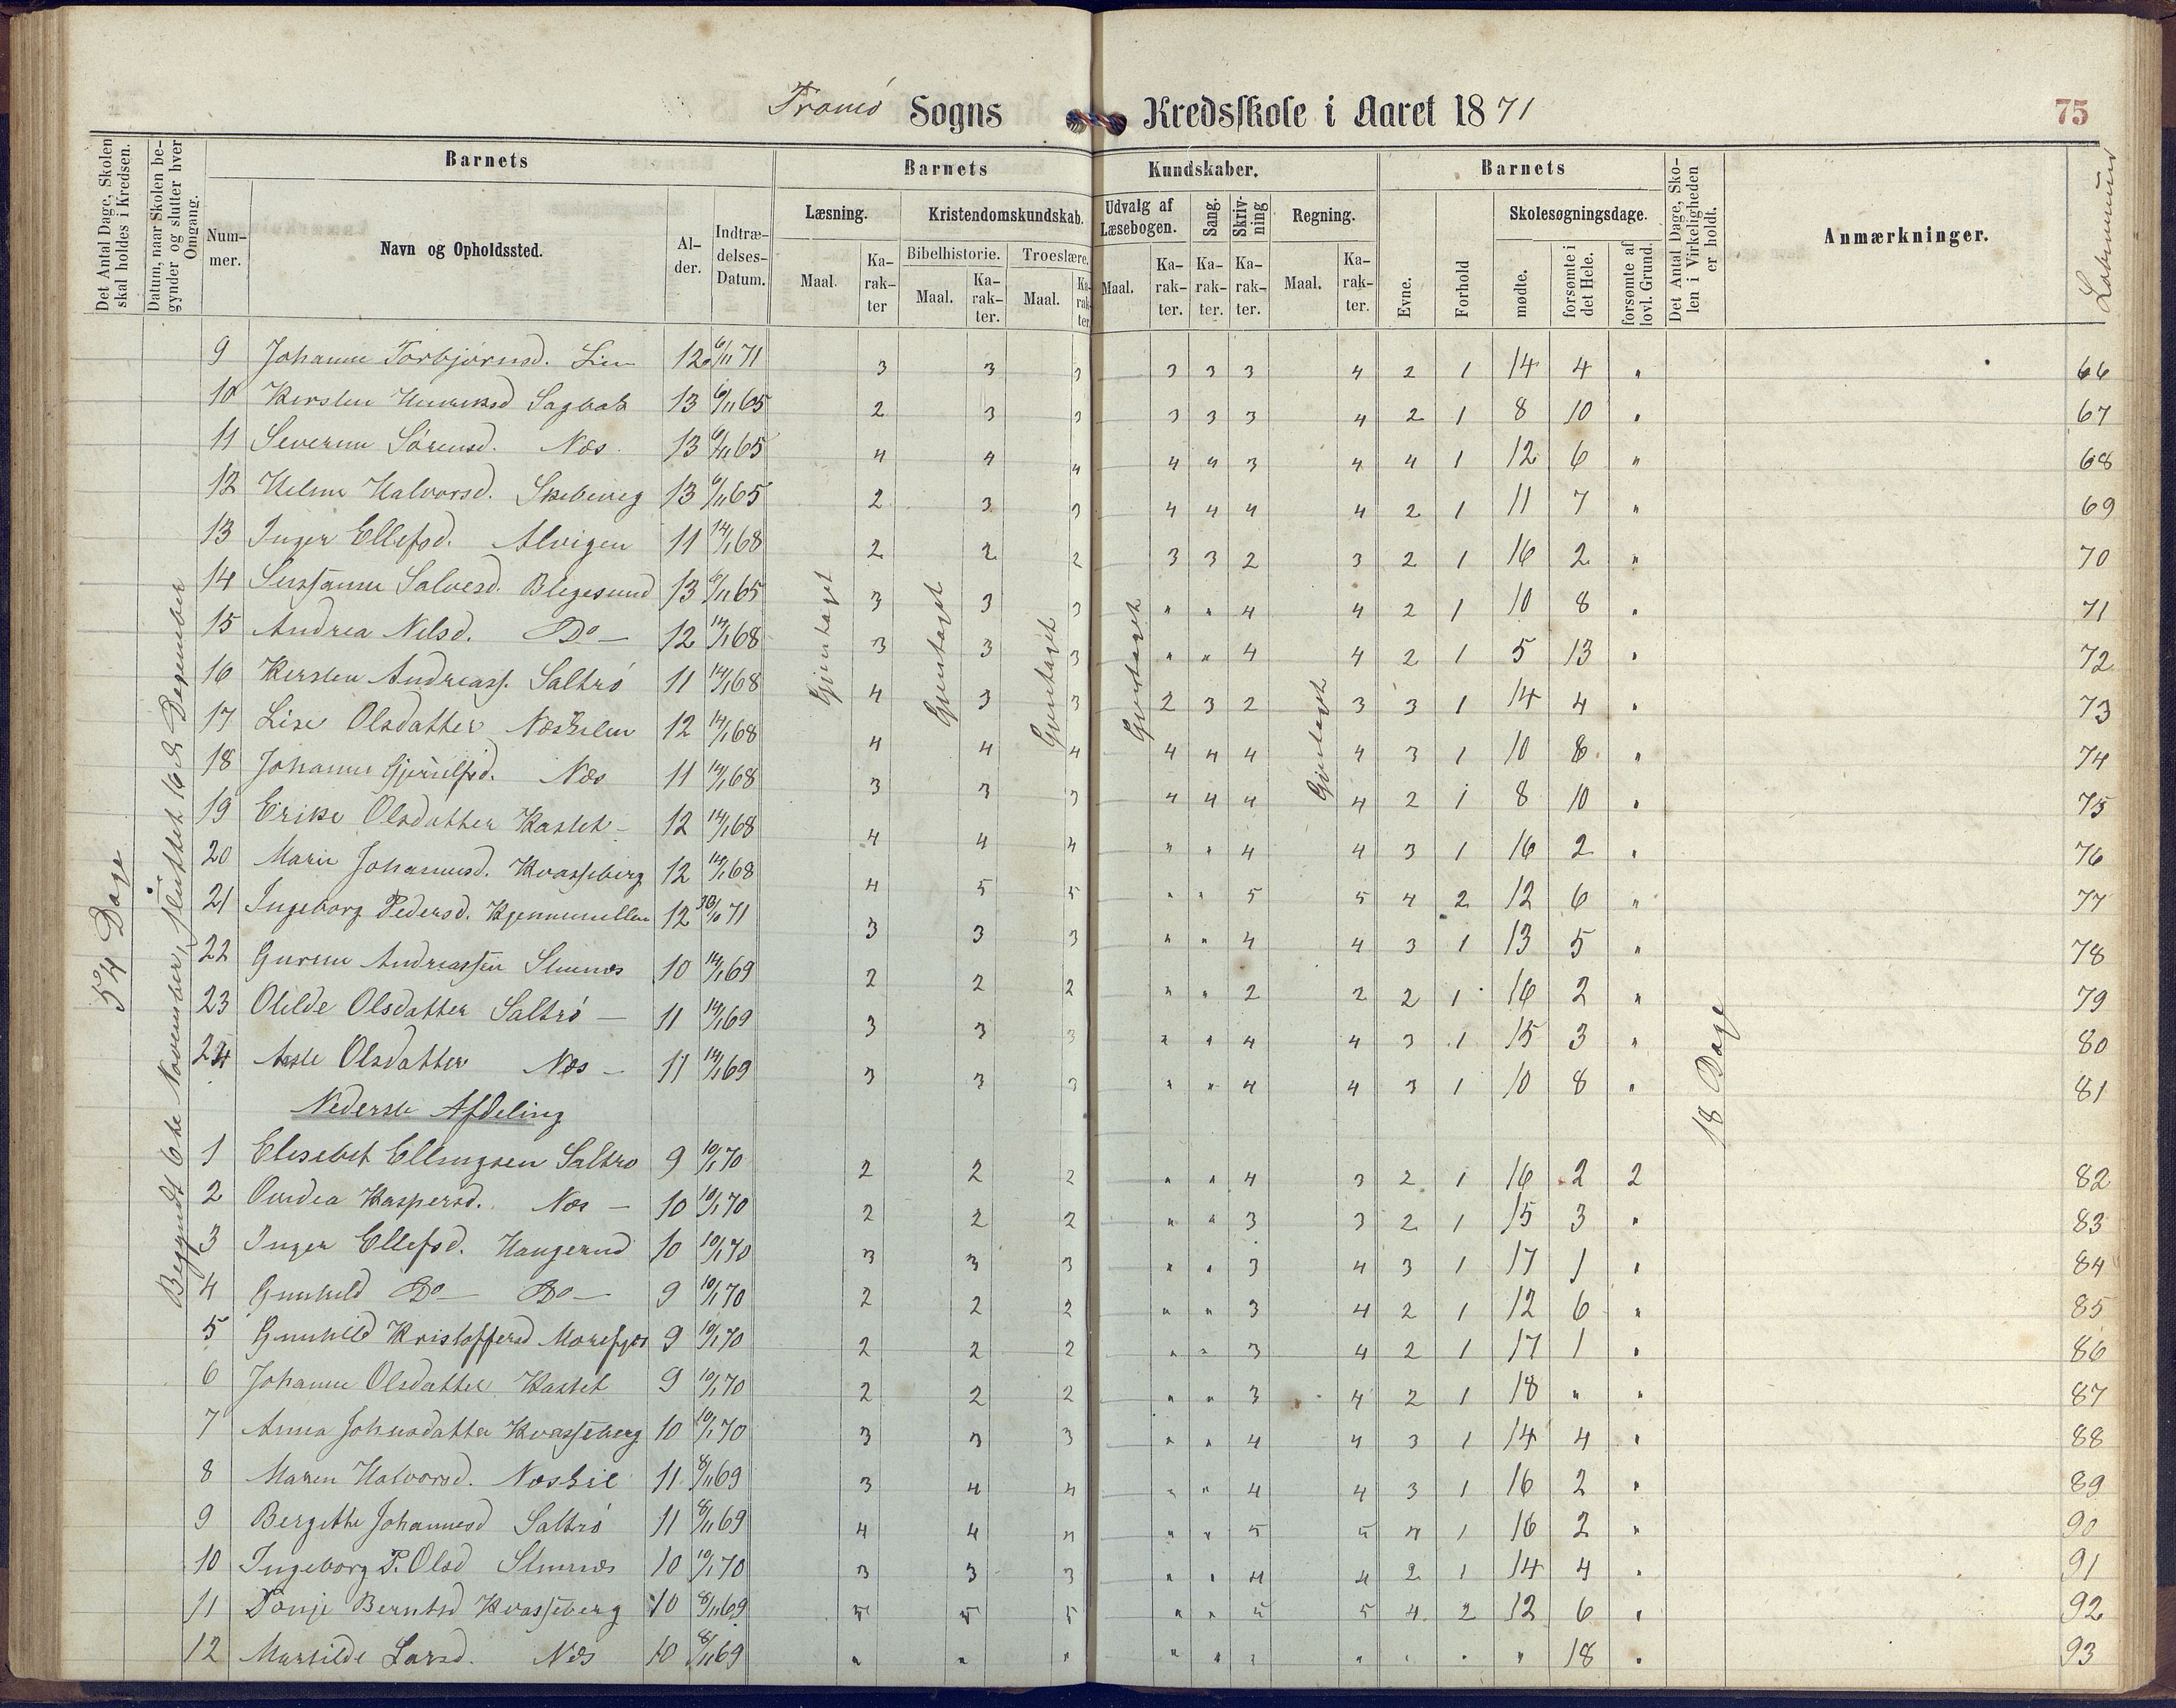 Tromö Sogns Kredsskole i Aaret 1871
75
Det Antal Dage, Skolen skal holdes i Kredsen.
Datum, naar Skolen begynder og slutter hver Omgang.
Barnets
Nummer.
Navn og Opholdssted.
Alder.
Indtrædelses-Datum.
Barnets Kundskaber.
Læsning.
Maal.
Karakter
Kristendomskundskab.
Bibelhistorie.
Maal.
Karakter.
Troeslære.
Maal.
Karakter.
Udvalg af Læsebogen.
Maal.
Karakter.
Sang.
Karakter.
Skrivning
Karakter.
Regning.
Maal.
Karakter.
Barnets
Evne.
Forhold
Skolesøgningsdage.
mødte.
forsømte i det Hele.
forsømte af lovl. Grund.
Det Antal Dage, Skolen i Virkeligheden er holdt.
Anmærkninger.
Löbenumer
54 Dage
Begyndt 6te November, sluttet 16de Desember
Gjentaget
Gjentaget
Gjentaget
Gjentaget
Gjentaget
18 Dage
9 Johanne Torbjörnsd. 12 6/11 71 3 3 3 3 3 3 4 2 1 14 4 " 66
10 Kirsten Henriksd 13 6/11 65 2 3 3 3 3 3 4 2 1 8 10 " 67
11 Severine Sörensd. Næs 13 6/11 65 4 4 4 4 4 3 4 4 1 12 6 " 68
12 Helene Halvorsd. 13 6/11 65 2 3 3 4 4 4 4 2 1 11 7 " 69
13 Inger Ellefsd. Alvigen 11 14/1 68 2 2 2 3 3 2 3 2 1 16 2 " 70
14 Sussanne Salvesd. Blegesund 13 6/11 65 3 3 3 " " 4 4 2 1 10 8 " 71
15 Andrea Nilsd. Do 12 14/1 68 3 3 3 " " 4 4 2 1 5 13 " 72
16 Kirsten Andreass. Saltrö 11 14/1 68 4 3 3 2 3 2 3 3 1 14 4 " 73
17 Lise Olsdatter Næskilen 12 14/1 68 4 4 4 4 4 4 4 3 1 10 8 " 74
18 Johanne Næs 11 14/1 68 3 3 3 4 4 4 4 2 1 8 10 " 75
19 Erike Olsdatter Kastet 12 14/1 68 4 4 4 " " 4 4 3 1 16 2 " 76
20 Marie Johannesd. Kvasseberg 12 14/1 68 4 5 5 " " 5 5 4 2 12 6 " 77
21 Ingeborg Pedersd. 12 30/10 71 3 3 3 " " 4 4 3 1 13 5 " 78
22 Gurine Andreassen 10 14/1 69 2 2 2 " " 2 2 2 1 16 2 " 79
23 Olilde Olsdatter Saltrö 11 14/1 69 3 3 3 " " 4 4 3 1 15 3 " 80
24 Olsdatter Næs 11 14/1 69 3 3 3 " " 4 4 3 1 10 8 " 81
Nederste Afdeling
1 Elisebet Ellingsen Saltrö 9 10/1 70 2 2 2 " " 4 3 2 1 16 2 2 82
2 Ovidea Kaspersd. Næs 10 10/1 70 2 2 2 " " 3 3 2 1 15 3 " 83
3 Inger Ellefsd. Haugerud 10 10/1 70 3 3 3 " " 3 4 3 1 17 1 " 84
4 Gunhild Do Do 9 10/1 70 2 2 2 " " 3 4 2 1 12 6 " 85
5 Gunhild Kristoffersd Morefjær 9 10/1 70 2 2 2 " " 3 4 2 1 17 1 " 86
6 Johanne Olsdatter Kastet 9 10/1 70 2 2 2 " " 3 4 2 1 18 " " 87
7 Anna Johnsdatter Kvasseberg 10 10/1 70 3 3 3 " " 4 4 3 1 14 4 " 88
8 Maren Halvorsd. Næskil 11 8/11 69 3 4 4 " " 4 4 3 1 16 2 " 89
9 Bergitte Johannesd Saltrö 11 8/11 69 4 4 4 " " 5 5 4 1 16 2 " 90
10 Ingeborg P. Olsd 10 10/1 70 3 3 3 " " 4 4 2 1 14 4 " 91
11 Tonje Berntsd Kvasseberg 10 8/11 69 5 5 5 " " 5 5 4 2 12 6 " 92
12 Martilde Larsd. Næs 10 8/11 69 " " " " " " " " " " 18 " 93